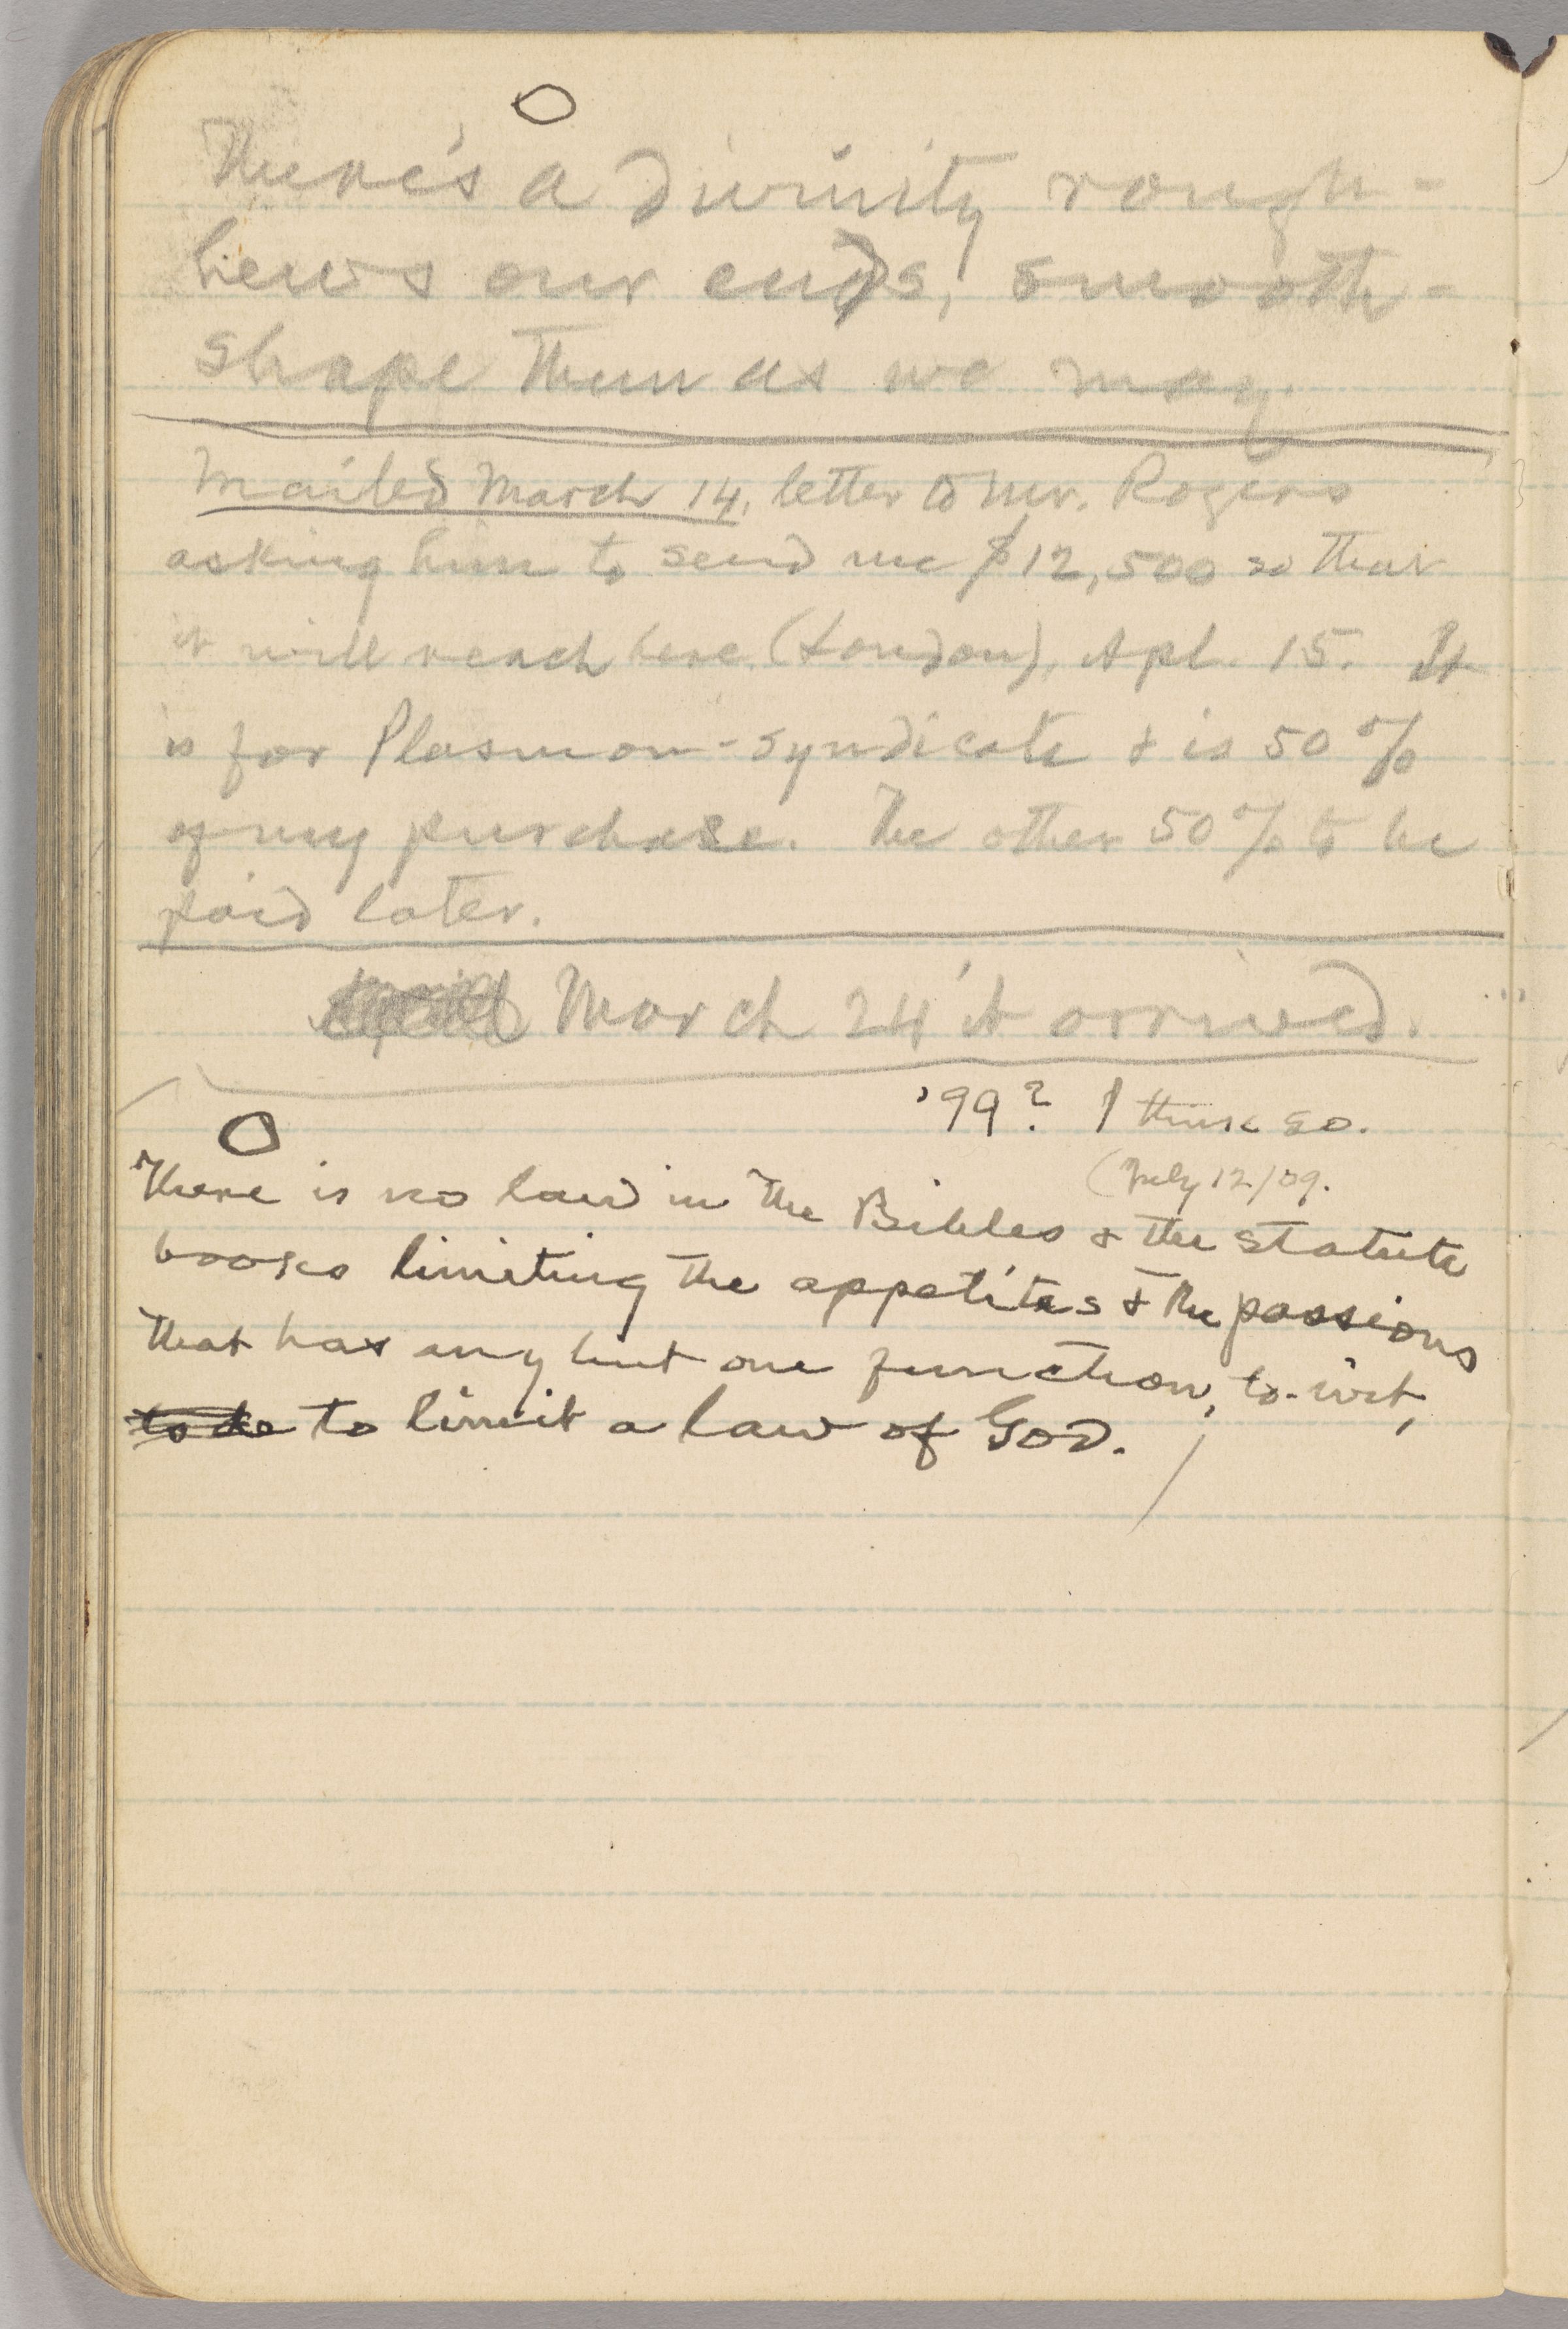 There's a divinity rough-
hews our ends, smooth-
shape them as we may.
Mailed March 14, letter to Mr. Rogers
asking him to send me $12,500 so that
it will reach here, (London), Apl. 15. It
is for Plasmon-syndicate & is 50%
of my purchase. The other 50% to be
paid later.
March 24 it arrived.
'99? I think so.
(July 12/09.
There is no law in the Bibles & the statute
books limiting the appetites & the passions
that has any but one function, to-wit,
to be to limit a law of God.